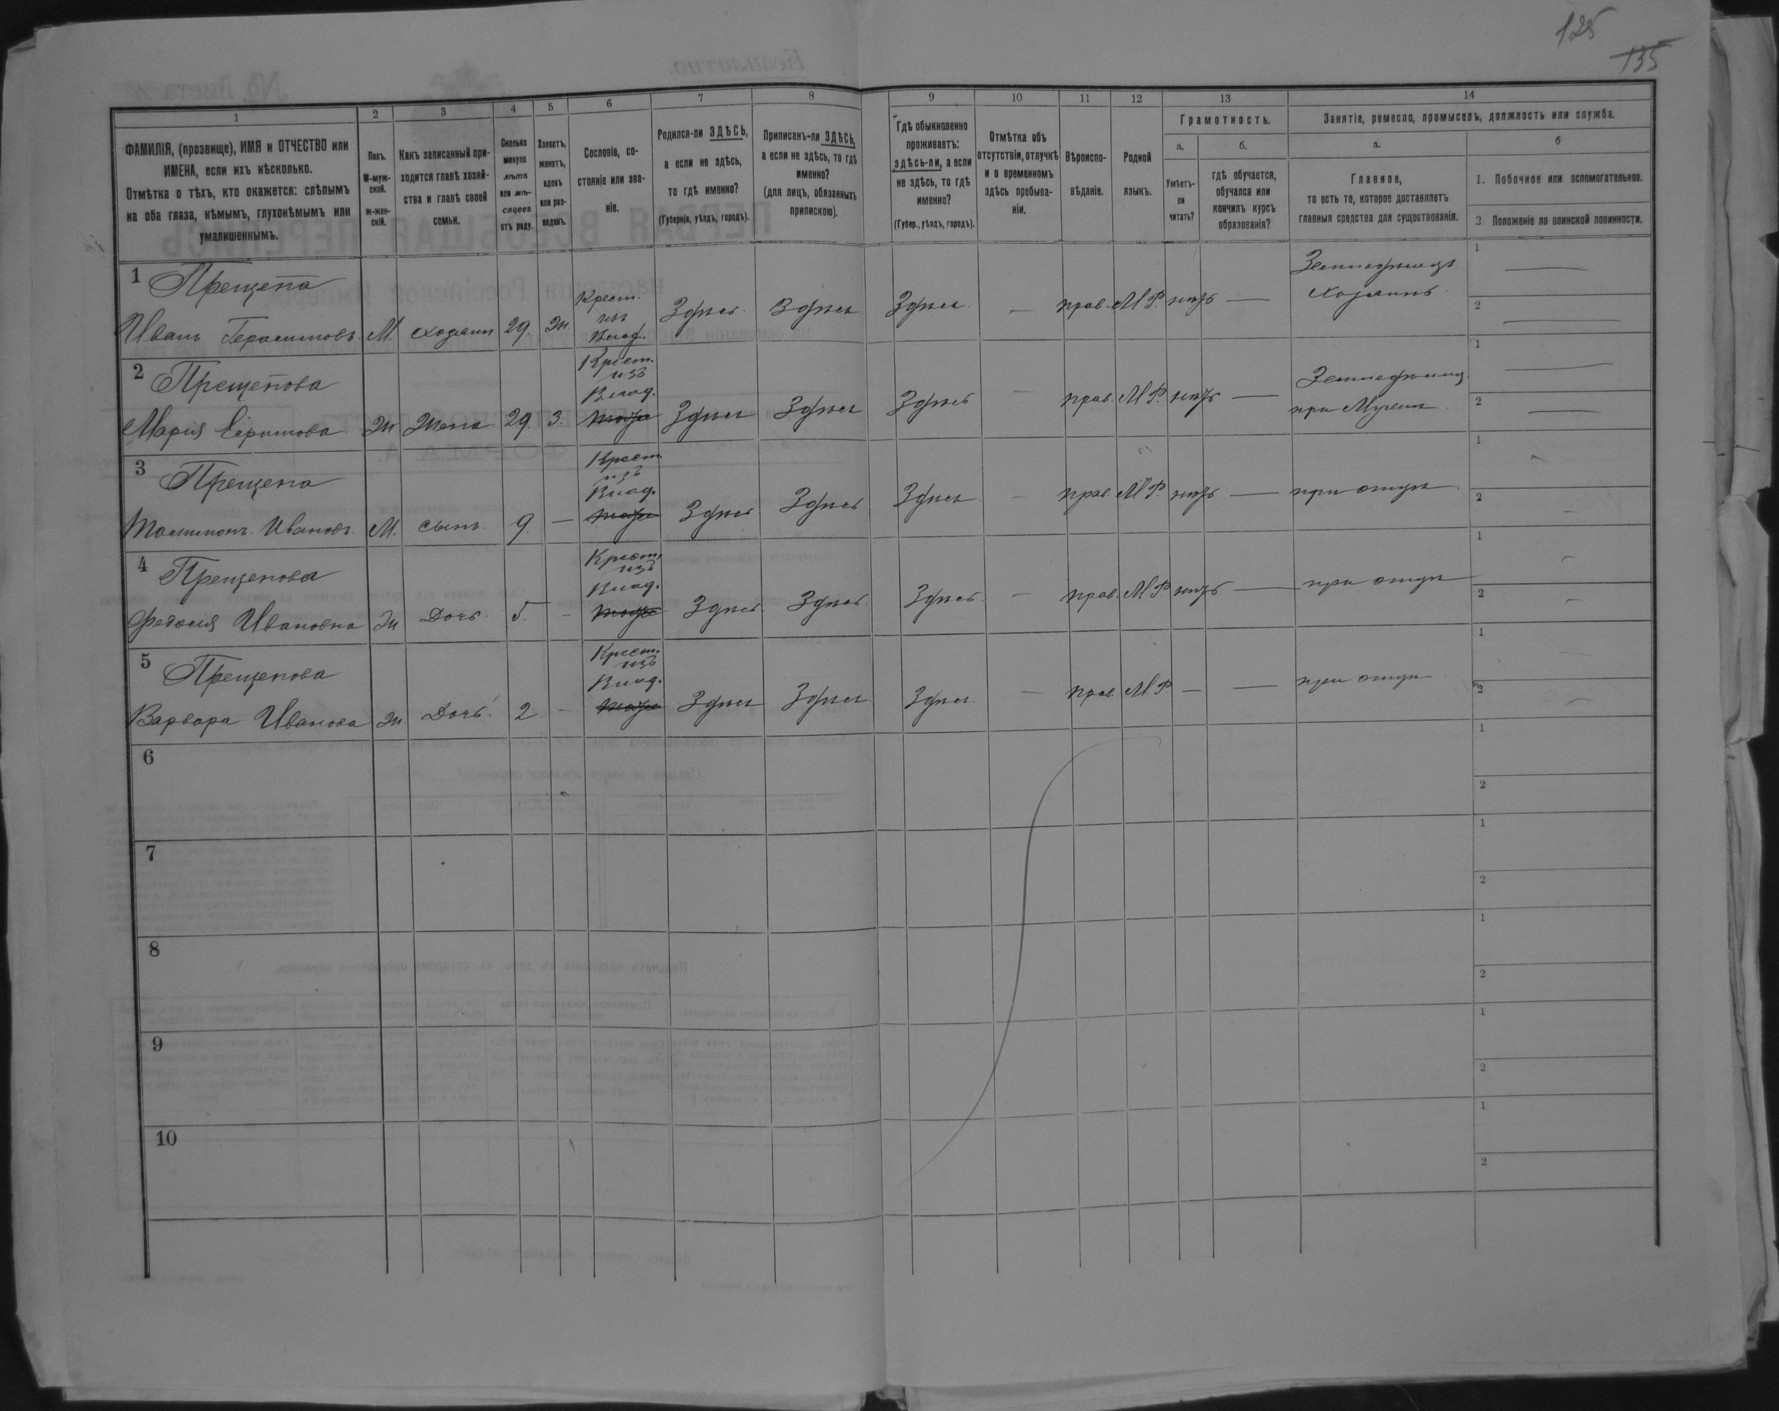 125
135
1 2 3 4 5 6 7 8 9 10 11 12 13 14
ФАМИЛІЯ, (прозвище), ИМЯ и ОТЧЕСТВО или ИМЕНА, если ихъ нѣсколько.
Отмѣтка о тѣхъ, кто окажется: слѣпымъ на оба глаза, нѣмымъ, глухонѣмымъ или умалишеннымъ.
Полъ. М-мужской. Ж-женскій.
Какъ записанный приходится главѣ хозяйства и главѣ своей семьи.
Сколько минуло лѣтъ или мѣсяцевъ отъ роду.
Холостъ, женатъ, вдовъ или разведенъ.
Сословіе, состояніе или званіе.
Родился-ли ЗДѢСЬ, а если не здѣсь, то гдѣ именно?
(Губернія, уѣздъ, городъ).
Приписанъ-ли ЗДѢСЬ, а если не здѣсь, то гдѣ именно?
(для лицъ, обязанныхъ припискою).
Гдѣ обыкновенно проживаетъ: здѣсь-ли, а если не здѣсь, то гдѣ именно?
(Губер., уѣздъ, городъ).
Отмѣтка объ отсутствіи, отлучкѣ и о временномъ здѣсь пребываніи.
Вѣроисповѣданіе.
Родной языкъ.
Грамотность.
а. б.
Умѣетъ-ли читать?
гдѣ обучается, обучался или кончилъ курсъ образованія?
Занятіе, ремесло, промыселъ, должность или служба.
а. б
Главное,
то есть то, которое доставляетъ главныя средства для существованія.
1. Побочное или вспомогательное.
2 Положеніе по воинской повинности.
1 Прещепа
Иванъ Герасимовъ М. хозяин 29. Ж. Крест. изъ Влад. Здѣсь Здѣсь Здѣсь — прав. М.Р. нѣтъ — Земледѣлецъ хозяинъ 1 — 2 —
2 Прещепова
Марія Ефимова Ж Жена 29 З. Крест. изъ Влад. Здѣсь Здѣсь Здѣсь — прав. М.Р. нѣтъ — Земледѣлец при Мужем 1 — 2 —
3 Прещепа
Иванов М. сынъ 9 — Крест. изъ Влад. Здѣсь Здѣсь Здѣсь — прав. М.Р. нѣтъ — при отцѣ 1 2
4 Прещепова
Федосія Ивановна Ж Дочь 5. — Крест. изъ Влад. Здѣсь Здѣсь Здѣсь — прав. М.Р. нѣтъ — при отцѣ 1 2
5 Прещепова
Варвара Иванова Ж Дочь 2 — Крест. изъ Влад. Здѣсь Здѣсь Здѣсь — прав. М.Р. — — при отцѣ 1 2
6 1 2
7 1 2
8 1 2
9 1 2
10 1 2